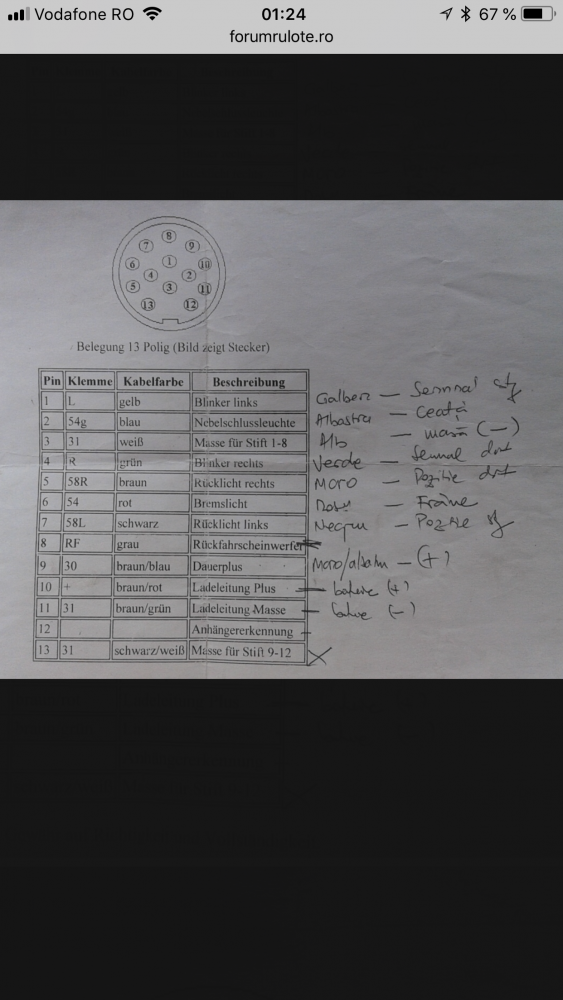 Vodafone RO 01:24 67 %
forumrulote.ro
8
7 9
6 1 10
4 2
5 3 11
13 12
Belegung 13 Polig (Bild zeigt Stecker)
Pin Klemme Kabelfarbe Beschreibung
1 L gelb Blinker links Galben — Semnal
2 54g blau Nebelschlussleuchte Albastru — Ceață
3 31 weiß Masse für Stift 1-8 Alb — masă (-)
4 R grün Blinker rechts Verde — Semnal drt
5 58R braun Rücklicht rechts Maro — Pozitie drt
6 54 rot Bremslicht Roșu — Frâne
7 58L schwarz Rücklicht links Negru — Pozitie
8 RF grau Rückfahrscheinwerfer
9 30 braun/blau Dauerplus Maro/albastru — (+)
10 + braun/rot Ladeleitung Plus — baterie (+)
11 31 braun/grün Ladeleitung Masse — (-)
12 Anhängererkennung —
13 31 schwarz/weiß Masse für Stift 9-12 X